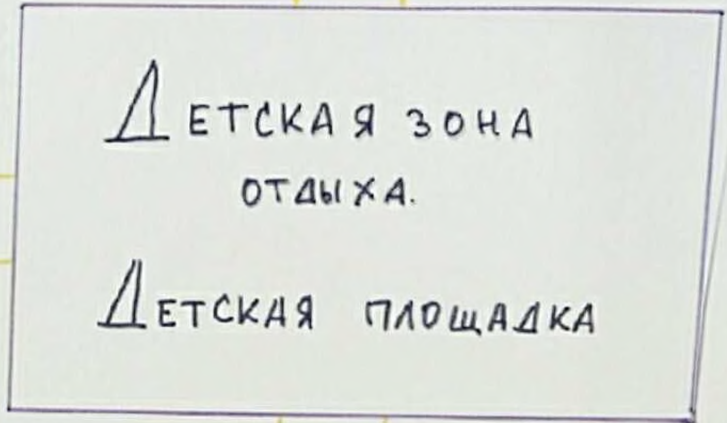 ДЕТСКАЯ ЗОНА
ОТДЫХА.
ДЕТСКАЯ ПЛОЩАДКА